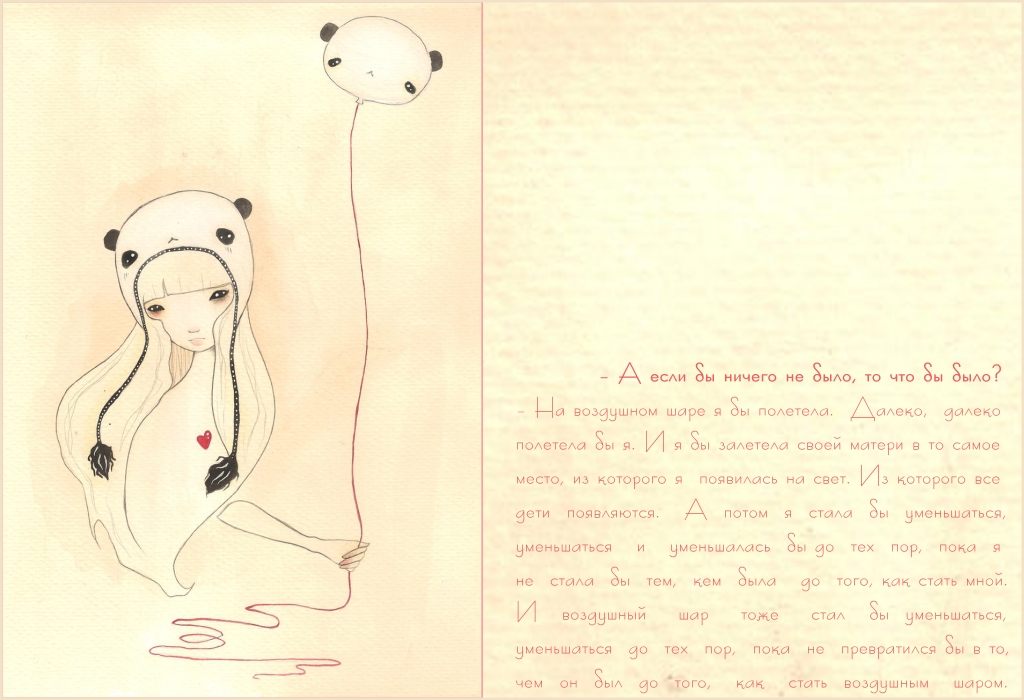 - А если бы ничего не было, то что бы было?
- На воздушном шаре я бы полетела. Далеко, далеко
полетела бы я. И я бы залетела своей матери в то самое
место, из которого я появилась на свет. Из которого все
дети появляются. А потом я стала бы уменьшаться,
уменьшаться и уменьшалась бы до тех пор, пока я
не стала бы тем, кем была до того, как стать мной.
И воздушный шар тоже стал бы уменьшаться,
уменьшаться до тех пор, пока не превратился бы в то,
чем он был до того, как стать воздушным шаром.